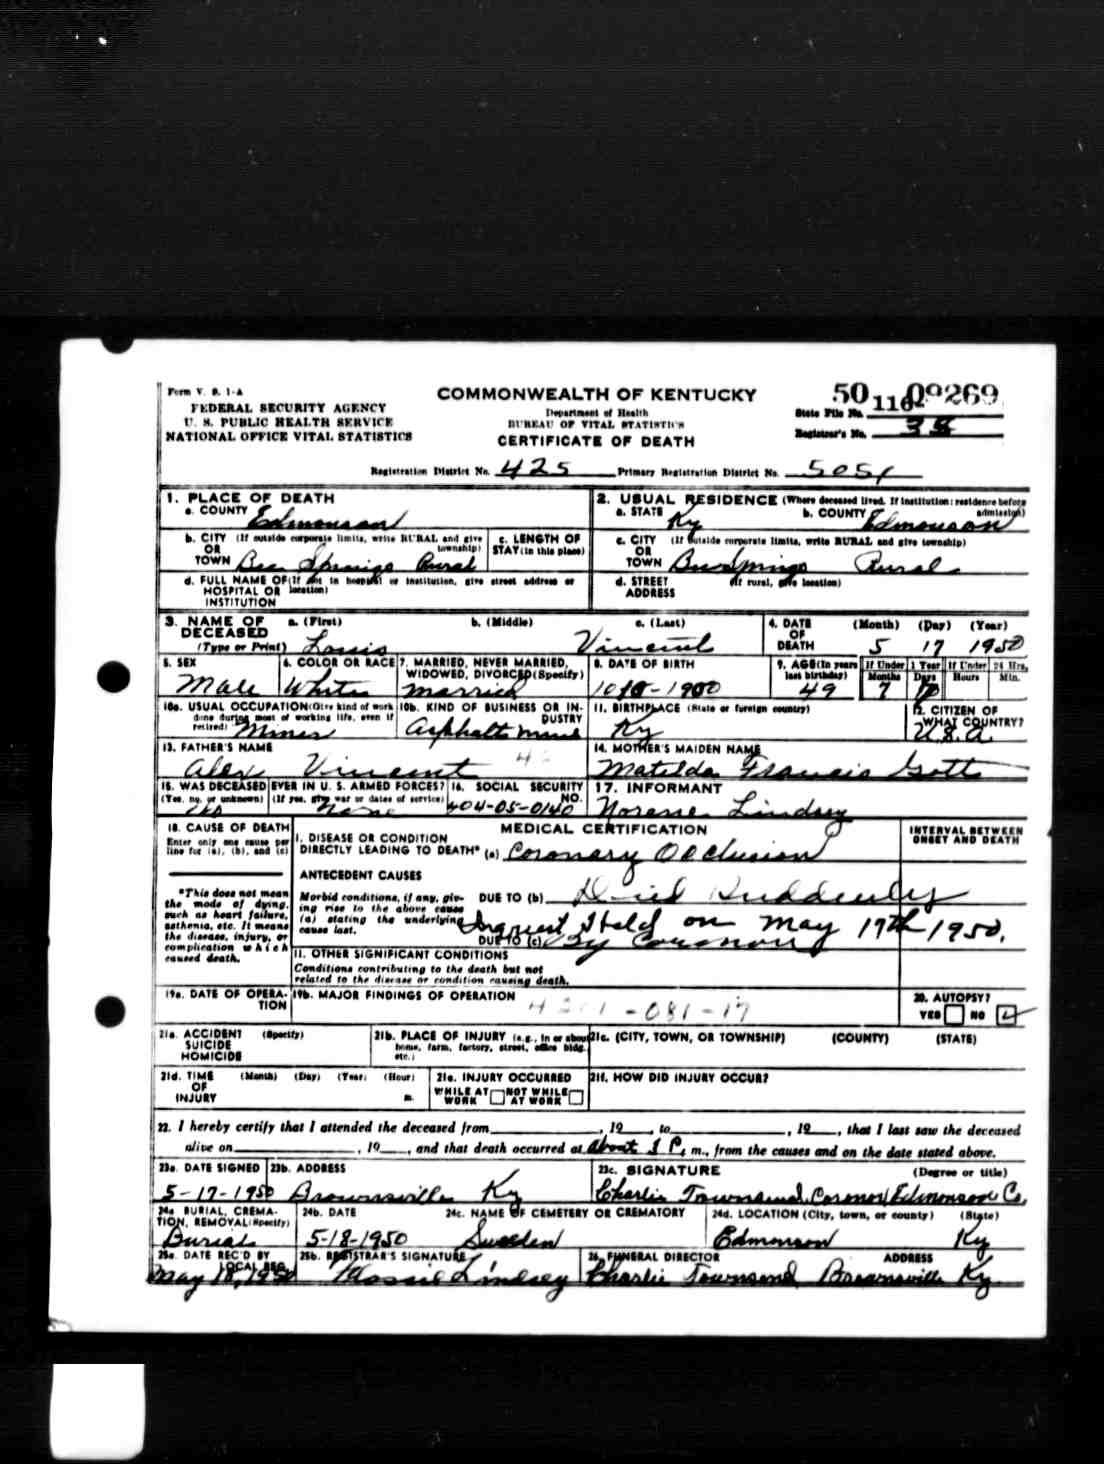 Form V. S. 1-A
FEDERAL SECURITY AGENCY
U. S. PUBLIC HEALTH SERVICE
NATIONAL OFFICE VITAL STATISTICS
COMMONWEALTH OF KENTUCKY
Department of Health
BUREAU OF VITAL STATISTICS
CERTIFICATE OF DEATH
State File No. 50 116 09269
Registrar's No. 38
Registration District No. 425 Primary Registration District No. 5051
1. PLACE OF DEATH
a. COUNTY Edmonson
2. USUAL RESIDENCE (Where deceased lived. If institution: residence before admission)
a. STATE Ky b. COUNTY Edmonson
b. CITY (If outside corporate limits, write RURAL and give township) OR TOWN Bee Springs Rural
c. LENGTH OF STAY (in this place)
c. CITY (If outside corporate limits, write RURAL and give township) OR TOWN Bee Springs Rural
d. FULL NAME OF (If not in hospital or institution, give street address or location) HOSPITAL OR INSTITUTION
d. STREET ADDRESS (If rural, give location)
3. NAME OF DECEASED (Type or Print) a. (First) Louis b. (Middle) c. (Last) Vincent
4. DATE OF DEATH (Month) (Day) (Year) 5 17 1950
5. SEX Male
6. COLOR OR RACE White
7. MARRIED, NEVER MARRIED, WIDOWED, DIVORCED (Specify) Married
8. DATE OF BIRTH 1900
9. AGE (In years last birthday) 49 If Under 1 Year Months 7 Days If Under 24 Hrs. Hours Min.
10a. USUAL OCCUPATION (Give kind of work done during most of working life, even if retired) Miner
10b. KIND OF BUSINESS OR INDUSTRY Asphalt Mine
11. BIRTHPLACE (State or foreign country) Ky
12. CITIZEN OF WHAT COUNTRY? U.S.A.
13. FATHER'S NAME Alex Vincent
14. MOTHER'S MAIDEN NAME Matilda Francis Gott
15. WAS DECEASED EVER IN U. S. ARMED FORCES? (Yes, no, or unknown) (If yes, give war or dates of service) No None
16. SOCIAL SECURITY NO. 404-05-0140
17. INFORMANT Norene Lindsey
18. CAUSE OF DEATH
Enter only one cause per line for (a), (b), and (c)
MEDICAL CERTIFICATION
INTERVAL BETWEEN ONSET AND DEATH
I. DISEASE OR CONDITION DIRECTLY LEADING TO DEATH* (a) Coronary Occlusion
ANTECEDENT CAUSES
*This does not mean the mode of dying, such as heart failure, asthenia, etc. It means the disease, injury, or complication which caused death.
Morbid conditions, if any, giving rise to the above cause (a) stating the underlying cause last.
DUE TO (b) Died Suddenly
Inquest Held on May 17th 1950.
DUE TO (c) By Coronor
II. OTHER SIGNIFICANT CONDITIONS
Conditions contributing to the death but not related to the disease or condition causing death.
19a. DATE OF OPERATION
19b. MAJOR FINDINGS OF OPERATION
20. AUTOPSY? YES NO
21a. ACCIDENT SUICIDE HOMICIDE (Specify)
21b. PLACE OF INJURY (e.g., in or about home, farm, factory, street, office bldg., etc.)
21c. (CITY, TOWN, OR TOWNSHIP) (COUNTY) (STATE)
21d. TIME OF INJURY (Month) (Day) (Year) (Hour) m.
21e. INJURY OCCURRED WHILE AT WORK NOT WHILE AT WORK
21f. HOW DID INJURY OCCUR?
22. I hereby certify that I attended the deceased from , 19 , to , 19 , that I last saw the deceased
alive on , 19 , and that death occurred at About 1 P. m., from the causes and on the date stated above.
23a. DATE SIGNED 5-17-1950
23b. ADDRESS Brownsville Ky
23c. SIGNATURE (Degree or title) Charlie Townsend, Coronor Edmonson Co,
24a. BURIAL, CREMATION, REMOVAL (Specify) Burial
24b. DATE 5-18-1950
24c. NAME OF CEMETERY OR CREMATORY Sweeden
24d. LOCATION (City, town, or county) (State) Edmonson Ky
25a. DATE REC'D BY LOCAL REG. May 18, 1950
25b. REGISTRAR'S SIGNATURE Flossie Lindsey
26. FUNERAL DIRECTOR ADDRESS Charlie Townsend Brownsville Ky.